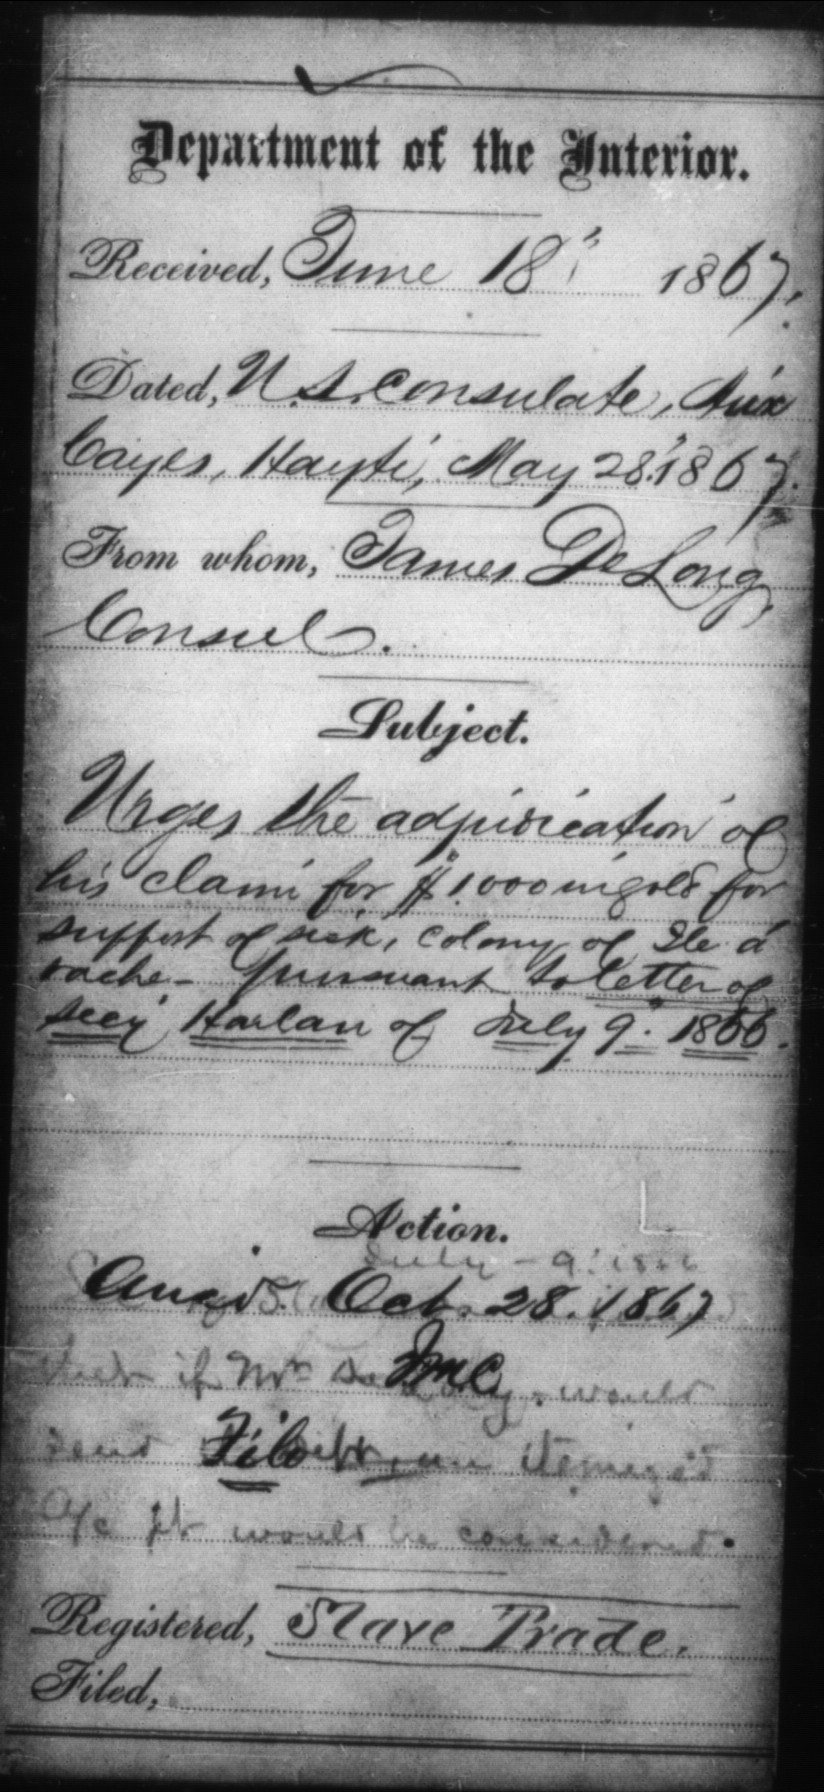 Department of the Interior.
Received, June 18" 1867.
Dated, U.S. Consulate, Aux
Cayes, Hayti, May 28." 1867.
From whom, James De Long,
Consul.
Subject.
Urges the adjudication of
his claim for $1.000 in gold for
support of sick, colony of Ile a'
vache - pursuant to letter of
Secy Harlan of July 9". 1866.
Action.
July - 9". 1866
Ansd. Oct. 28. 1867
if Mr De Long would
JMC
send an itemized
File
a/c it would be considered.
Registered, Slave Trade.
Filed,